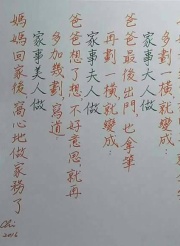 多劃一橫就變成：
家事大人做
爸爸最後出門，也拿筆
再劃一橫就變成：
家事夫人做
爸爸想了想，不好意思就再
多加幾劃，寫道：
家事美人做
媽媽回家後，窩心地做家務了
2016